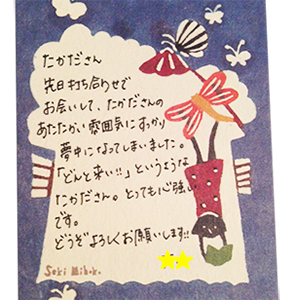 たかださん
先日打ち合わせで
お会いして、たかださんの
あたたかい雰囲気にすっかり
夢中になってしまいました。
「どんと来い!!」というような
たかださん。とっても心強い
です。
どうぞよろしくお願いします!!
Seki Mihoko.